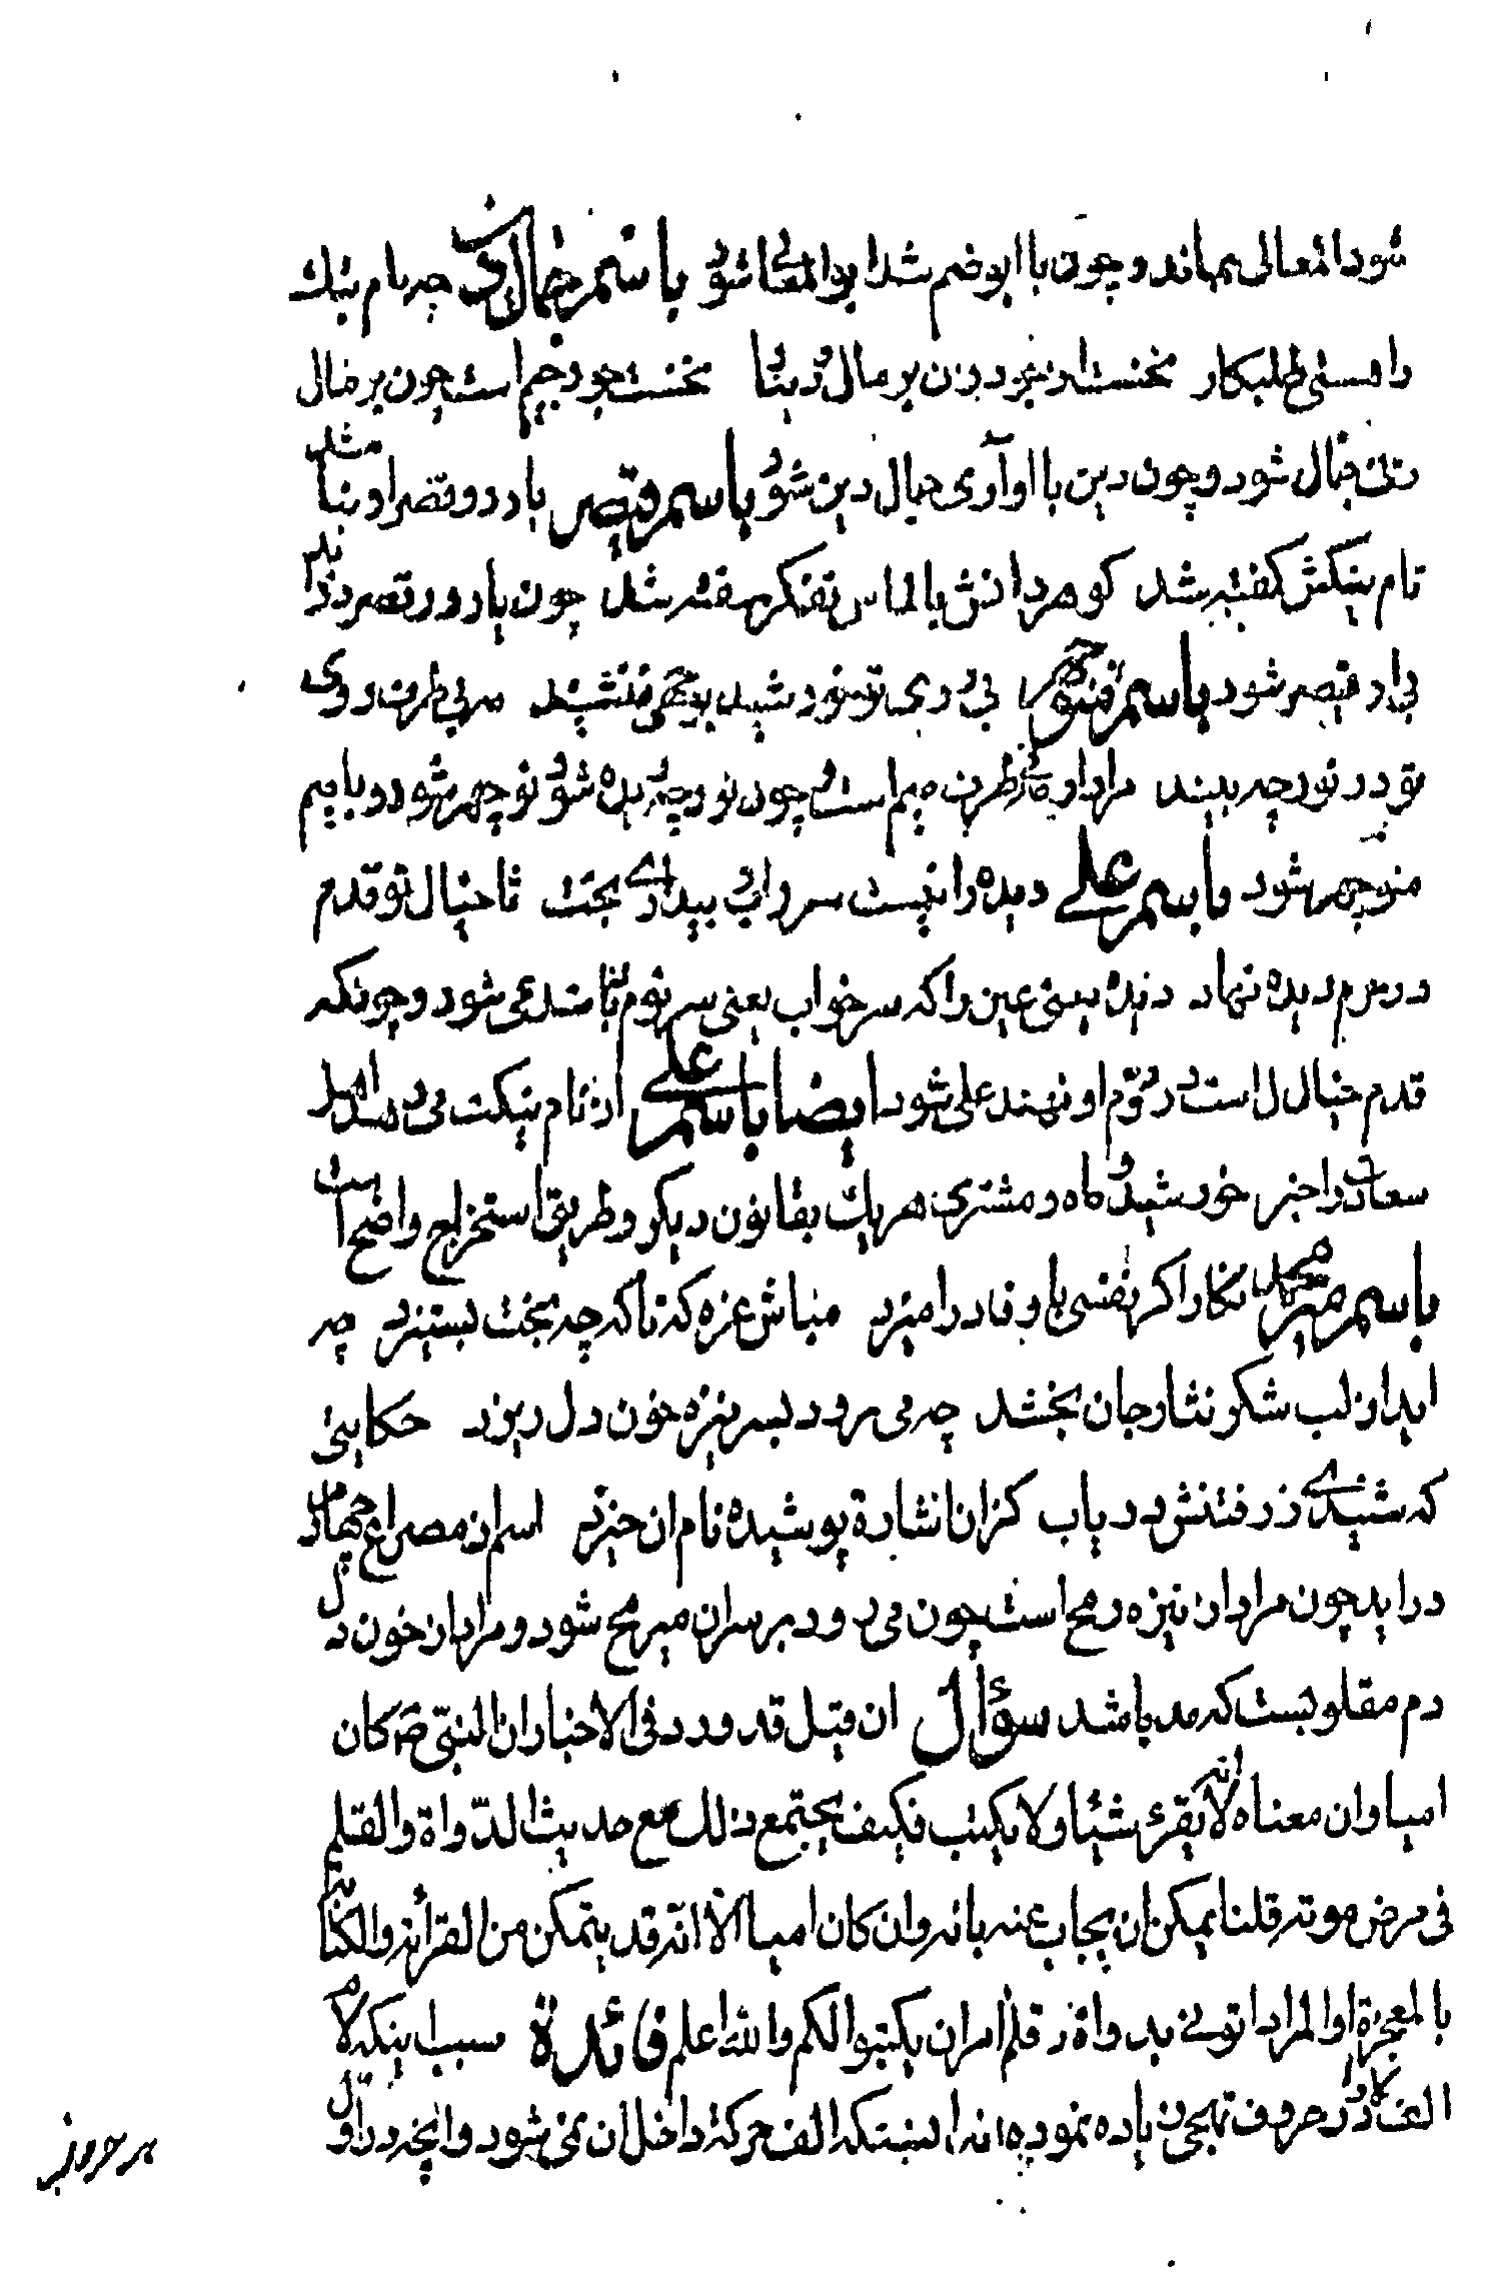 شود المعالی بماند و چون با ابو ضم شد ابو المعالی شود باسم جمال الدین چه نام نیك
را هستی طلبکار نخست از بزد بر مال و دینا نخست جود جیم است چون بر مال
جمال شود و چون دین با او آری جمال دین شود باسم قیصر یار در و قصر او بنا شد
نام نیکش کفته شد کوهر دانش بالماس تفکر سفته شد چون یا در و قصر در آید
قیصر شود باسم منوچهر بی طرف روی
تو در نور چه بیند مراد از طرف میم است و چون نور چه دیده شود نوچهر شود و با میم
منوچهر شود باسم علی دیده را نیست سر خواب ز بیداری بخت تا خیال تو قدم
در حرم دیده نهاد دیده یعنی عین را که سر خواب یعنی سر نوم نباشد عی شود و چونکه
قدم خیال ل است در دوم او نهند علی شود ایضا باسم علی از نام نیکت می دهد اهل
سعادت را خبر خورشید و ماه و مشتری هر یك بقانون دیکر و طریق استخراج واضح است
باسم میر محمد نکار اکر نفسی با وفا در امیزد مباش غره که ناکه چه بخت بستیزد چه
اید از لب شکر نثار جان بخشد چه می رود بسر نیزه خون دل ریزد حکایتی
که شنیدی ز رفتنش دریاب کزان اشارة پوشیده نام ان خیزد اسم از مصراع چهارم
در اید چون مراد از نیزه رمح است چون می رود بر سر ان میر مح شود و مراد از خون دل
دم مقلوبست که مد باشد سؤال ان قیل قد ورد فی الاخبار ان النبی ص کان
امیا وان معناه انه لا یقرئ شیئا ولا یکتب فکیف یجتمع ذلك مع حدیث الدواة والقلم
فی مرض موته قلنا یمکن ان یجاب عنه بانه وان کان امیا الا انه قد یتمکن من القرائة والکتابة
بالمعجزة او المراد اتونی بدواة وقلم امر ان یکتبوا لکم والله اعلم فائدة سبب اینکه لام
الف را در حروف تهجی یاده نموده اند اینستکه الف حرکة داخل ان نمی شود و انچه در اول
هر حروف